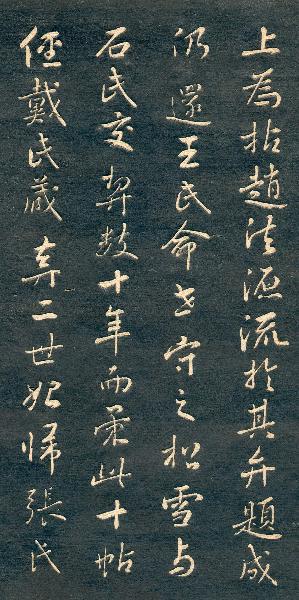 上為拈趙法源流於其弁題成
仍還王氏命世守之松雪与
石民交契數十年而此十帖
經戴氏藏弆二世始歸張氏